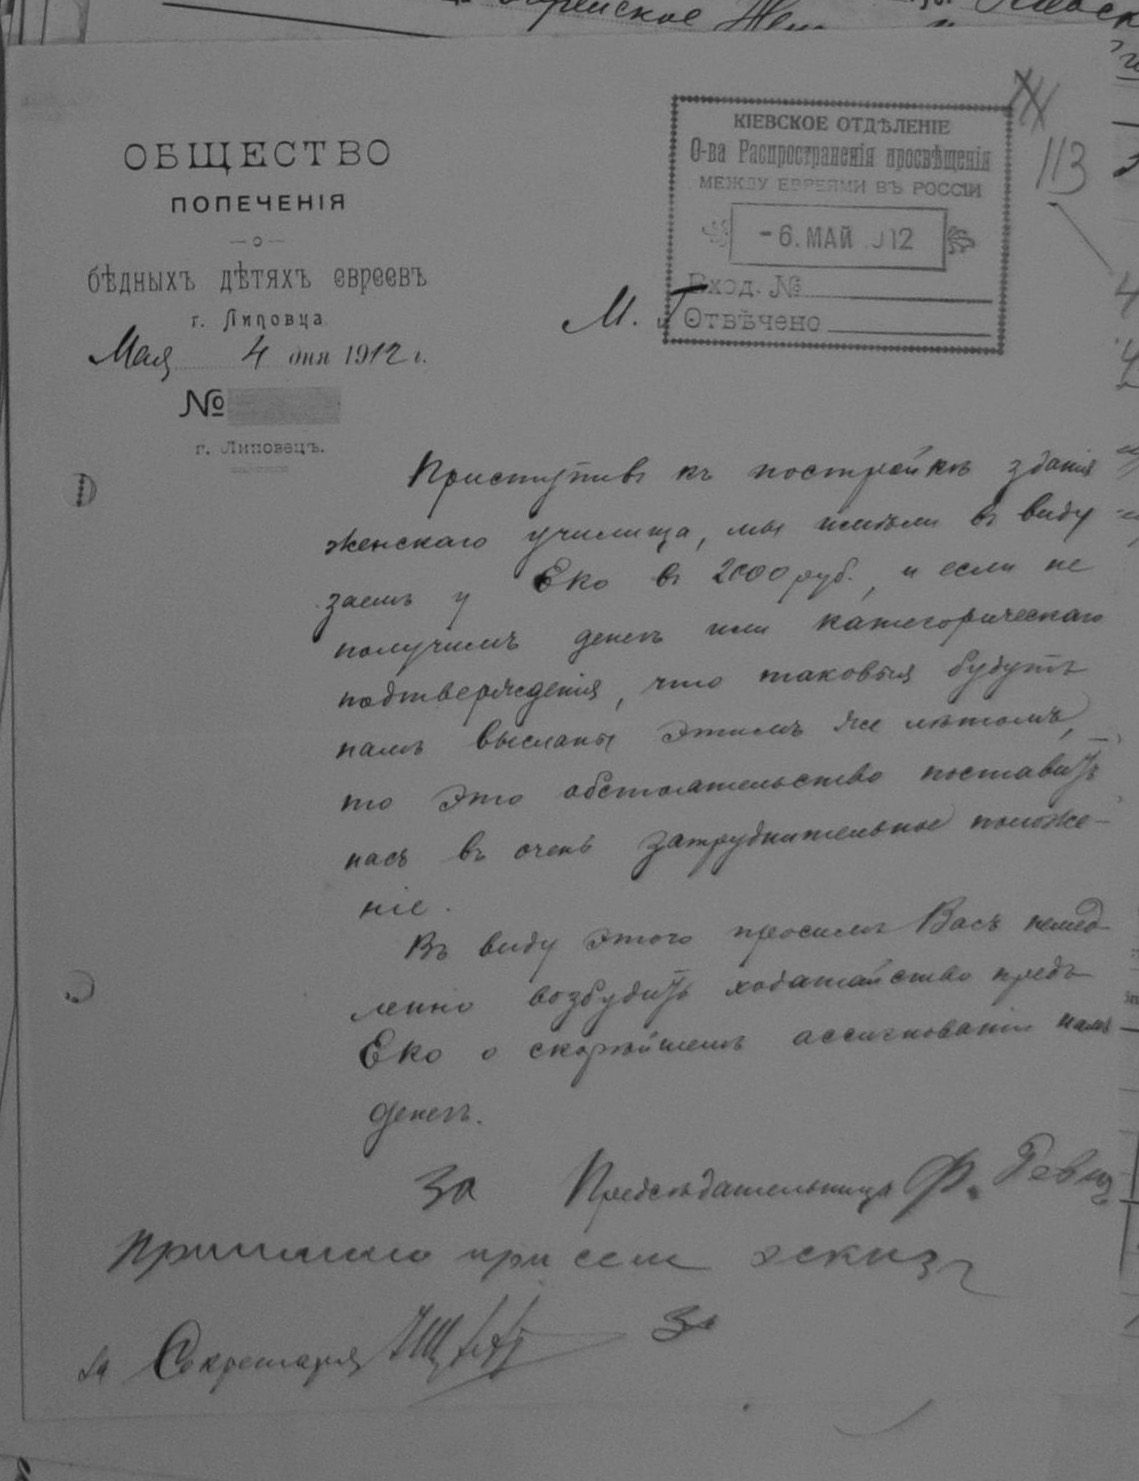 ОБЩЕСТВО
ПОПЕЧЕНІЯ
бѣдныхъ дѣтяхъ евреевъ
г. Липовца
Мая 4 дня 1912 г.
№
г. Липовецъ.
КІЕВСКОЕ ОТДѢЛЕНІЕ
О-ва Распространенія просвѣщенія
МЕЖДУ ЕВРЕЯМИ ВЪ РОССІИ
-6. МАЙ 912
Вход. №
Отвѣчено
113
М. Г.
Приступивъ къ постройкѣ зданія
женскаго училища, мы имѣли въ виду
заемъ у Еко въ 2000 руб., и если не
получимъ денегъ или категорическаго
подтвержденія, что таковыя будутъ
намъ высланы этимъ же лѣтомъ,
то это обстоятельство поставитъ
насъ въ очень затруднительное положе-
ніе.
Въ виду этого просимъ Васъ немед-
ленно возбудить ходатайство предъ
Еко о скорѣйшемъ ассигнованіи намъ
денегъ.
За Предсѣдательница Ф.
при семъ эскизъ
За Секретаря
За